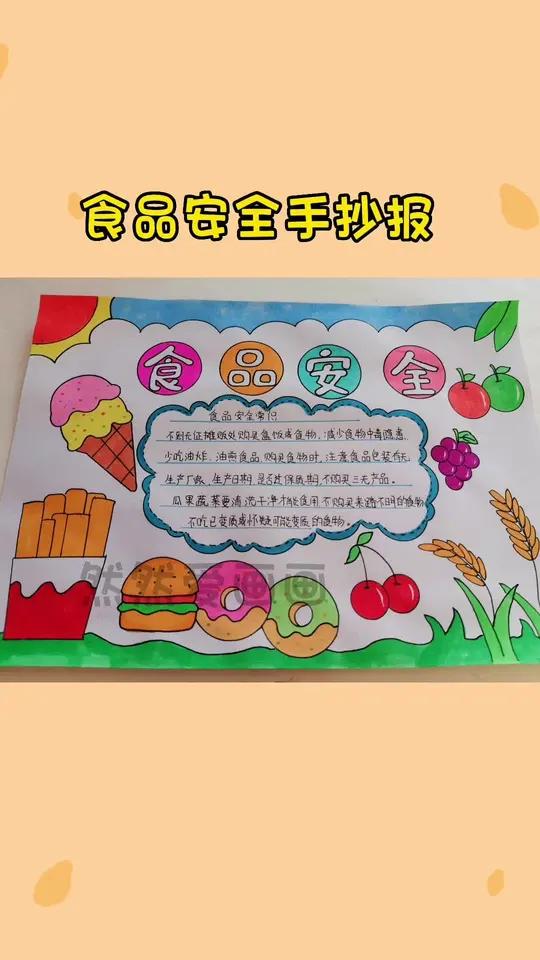 食品安全手抄报
食品安全
食品安全常识
不到无证摊贩处购买盒饭或食物，减少食物中毒隐患。
少吃油炸、油煎食品。购买食物时，注意食品包装有无
生产厂家、生产日期，是否过保质期，不购买三无产品。
瓜果蔬菜要清洗干净才能食用，不购买来路不明的食物
不吃已变质或怀疑可能变质的食物。
然然爱画画